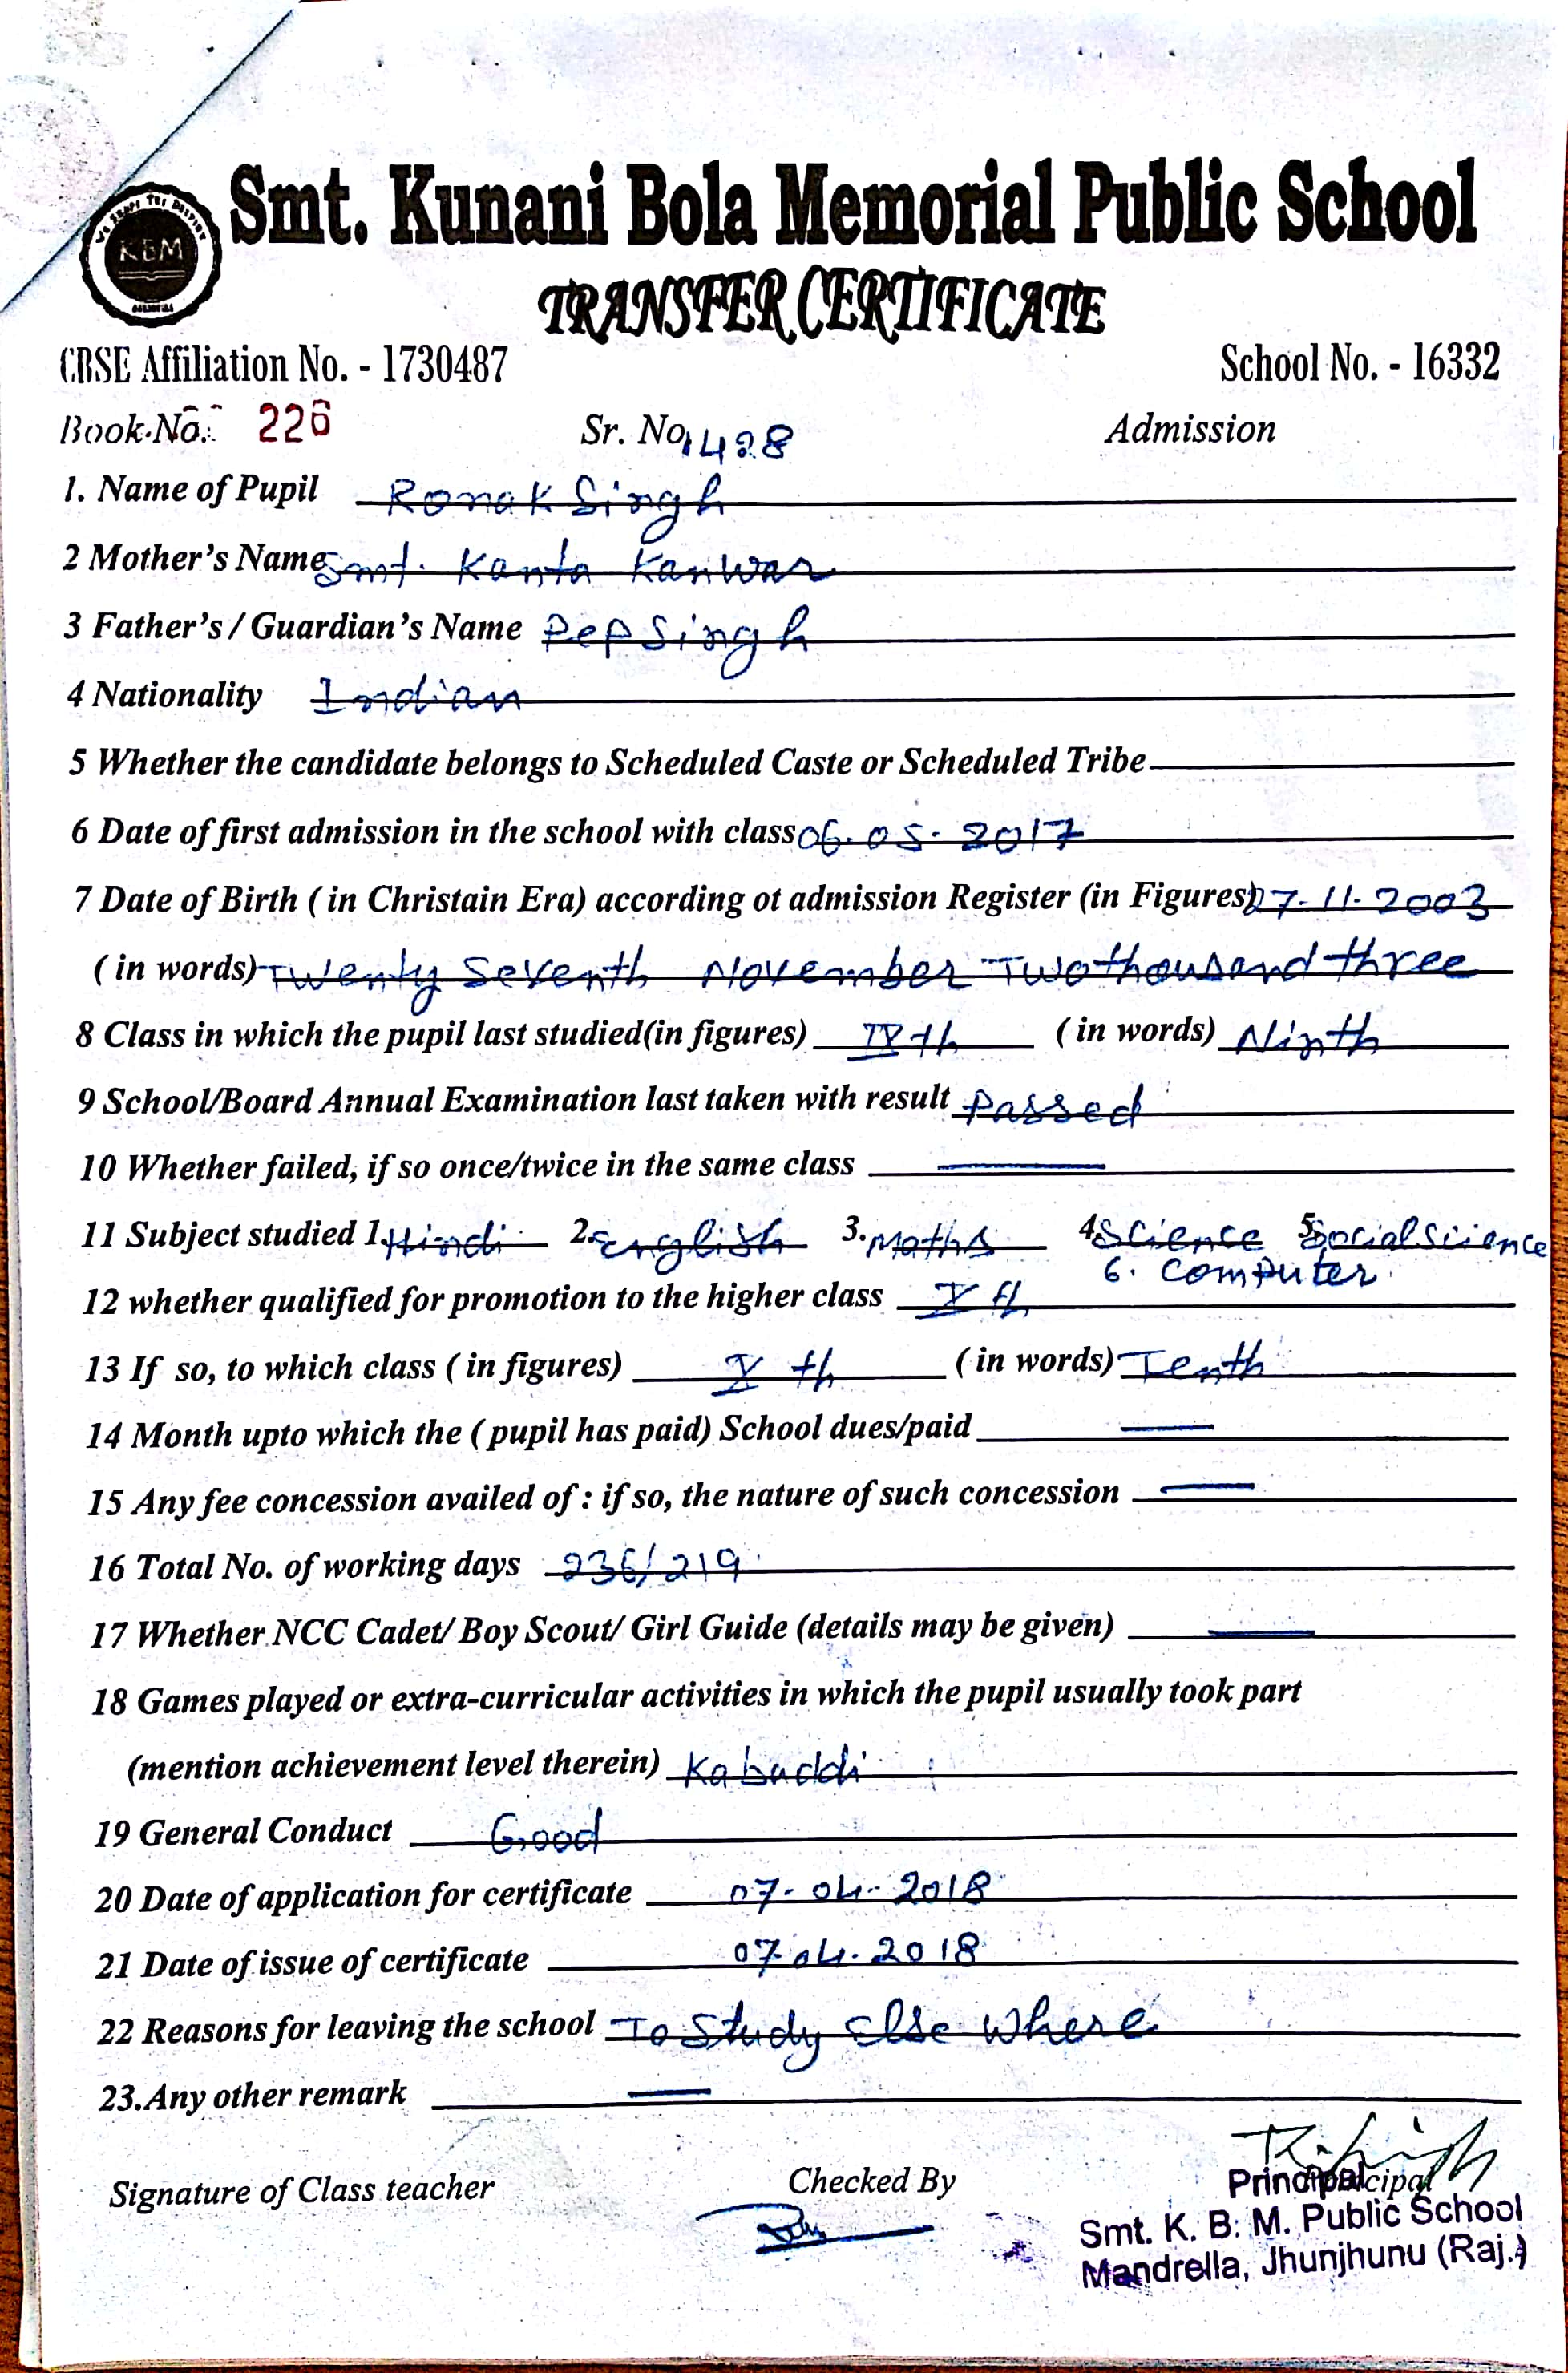 KBM
Smt. Kunani Bola Memorial Public School
TRANSFER CERTIFICATE
CBSE Affiliation No. - 1730487 School No. - 16332
Book No. 226 Sr. No. 1428 Admission
1. Name of Pupil Ronak Singh
2 Mother's Name Smt. Kanta Kanwar
3 Father's / Guardian's Name Pep Singh
4 Nationality Indian
5 Whether the candidate belongs to Scheduled Caste or Scheduled Tribe
6 Date of first admission in the school with class 06.05.2017
7 Date of Birth ( in Christain Era) according ot admission Register (in Figures) 27-11-2003
( in words) Twenty Seventh November Two thousand three
8 Class in which the pupil last studied(in figures) IXth ( in words) Ninth
9 School/Board Annual Examination last taken with result Passed
10 Whether failed, if so once/twice in the same class —
11 Subject studied 1. Hindi 2. English 3. Maths 4. Science 5. Social Sciience
6. Computer
12 whether qualified for promotion to the higher class Xth
13 If so, to which class ( in figures) Xth ( in words) Tenth
14 Month upto which the ( pupil has paid) School dues/paid —
15 Any fee concession availed of : if so, the nature of such concession —
16 Total No. of working days 236/219
17 Whether NCC Cadet/ Boy Scout/ Girl Guide (details may be given) —
18 Games played or extra-curricular activities in which the pupil usually took part
(mention achievement level therein) Kabaddi
19 General Conduct Good
20 Date of application for certificate 07-04-2018
21 Date of issue of certificate 07.04.2018
22 Reasons for leaving the school To Study Else Where
23. Any other remark —
Signature of Class teacher Checked By Principal
Principal
Smt. K. B. M. Public School
Mandrella, Jhunjhunu (Raj.)